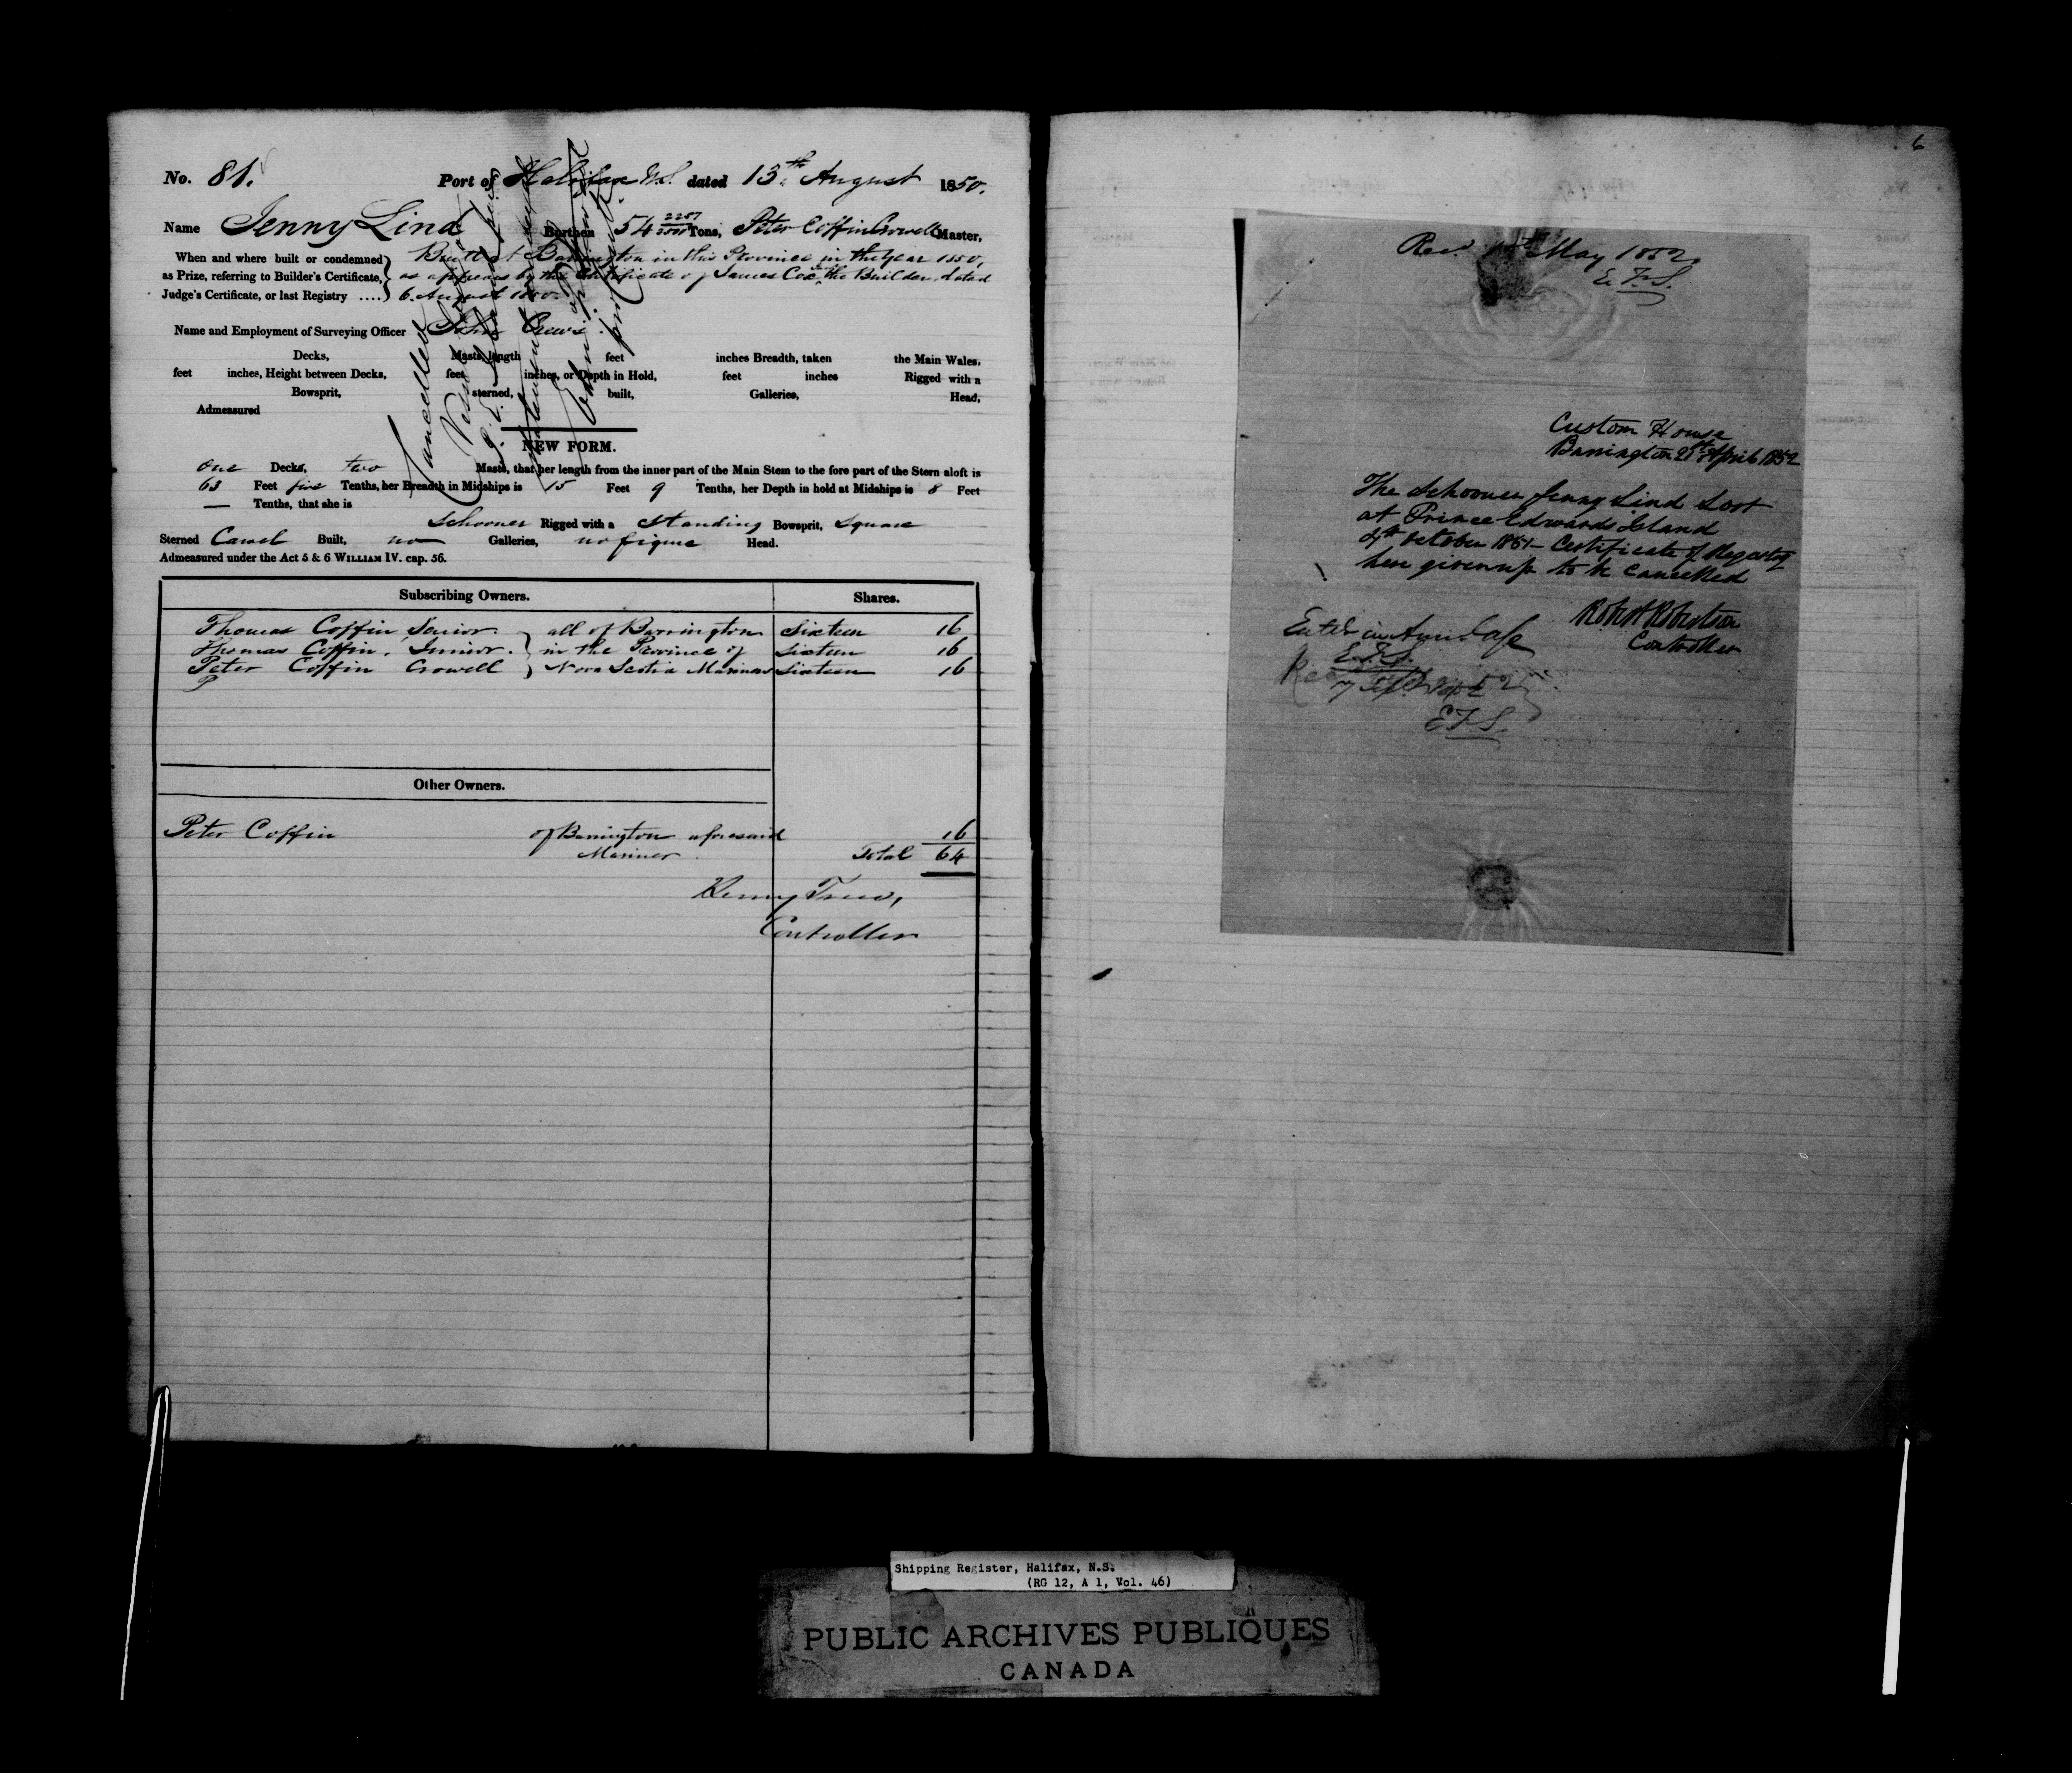 No. 81. Port of Halifax N.S. dated 13th August 1850.
Name Jenny Lind Burthen 54 2257/3500 Tons, Peter Coffin Crowell Master,
When and where built or condemned as Prize, referring to Builder's Certificate, Judge's Certificate, or last Registry ....
Built at Barrington in this Province in the year 1850,
as appears by the Certificate of James Cox, the Builder, dated
6. August 1850.
Name and Employment of Surveying Officer John Crews.
Decks, Masts, length feet inches Breadth, taken the Main Wales,
feet inches, Height between Decks, feet inches, or Depth in Hold, feet inches Rigged with a
Bowsprit, sterned, built, Galleries, Head,
Admeasured
Cancelled
Vessel
NEW FORM.
one Decks, two Masts, that her length from the inner part of the Main Stem to the fore part of the Stern aloft is
63 Feet five Tenths, her Breadth in Midships is 15 Feet 9 Tenths, her Depth in hold at Midships is 8 Feet
— Tenths, that she is
Schooner Rigged with a Standing Bowsprit, Square
Sterned Carvel Built, no Galleries, no figure Head.
Admeasured under the Act 5 & 6 WILLIAM IV. cap. 56.
Subscribing Owners. Shares.
Thomas Coffin, Senior. all of Barrington Sixteen 16
Thomas Coffin, Junior. in the Province of Sixteen 16
Peter Coffin Crowell Nova Scotia Mariners Sixteen 16
P
Other Owners.
Peter Coffin of Barrington aforesaid 16
Mariner. Total 64
Controller
6
Recd. May 1852
E.F.S.
Custom House
Barrington 21st April 1852
The Schooner Jenny Lind Lost
at Prince Edwards Island
4th October 1851 – Certificate of Registry
here given up to be cancelled
Robert Robertson
Controller
E.F.S.
7
E.F.S.
Shipping Register, Halifax, N.S.
(RG 12, A 1, Vol. 46)
PUBLIC ARCHIVES PUBLIQUES
CANADA